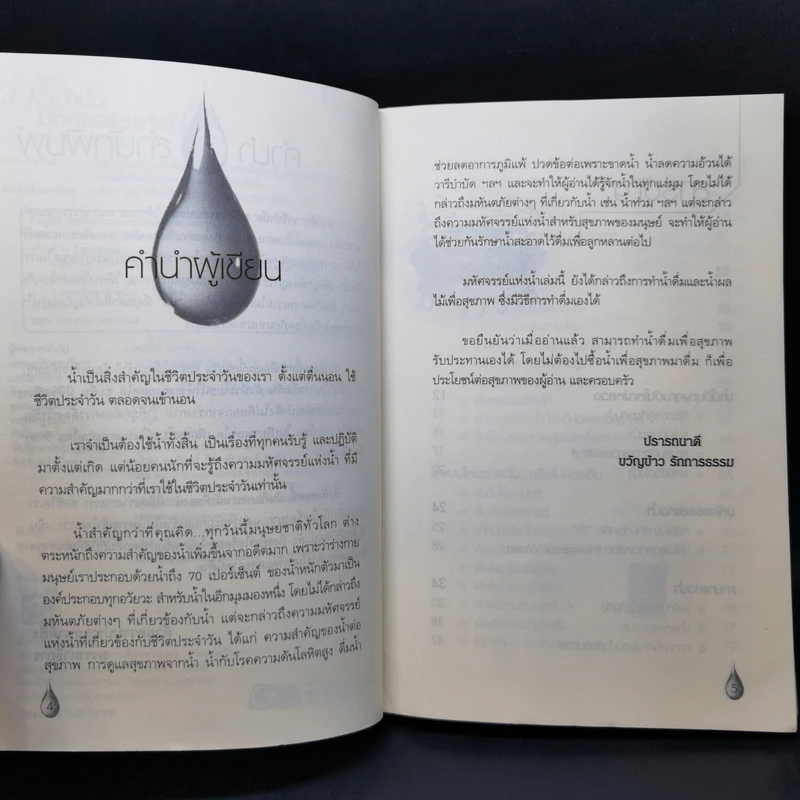 คำนำผู้เขียน
น้ำเป็นสิ่งสำคัญในชีวิตประจำวันของเรา ตั้งแต่ตื่นนอน ใช้
ชีวิตประจำวัน ตลอดจนเข้านอน
เราจำเป็นต้องใช้น้ำทั้งสิ้น เป็นเรื่องที่ทุกคนรับรู้ และปฏิบัติ
มาตั้งแต่เกิด แต่น้อยคนนักที่จะรู้ถึงความมหัศจรรย์แห่งน้ำ ที่มี
ความสำคัญมากกว่าที่เราใช้ในชีวิตประจำวันเท่านั้น
น้ำสำคัญกว่าที่คุณคิด...ทุกวันนี้มนุษยชาติทั่วโลก ต่าง
ตระหนักถึงความสำคัญของน้ำเพิ่มขึ้นจากอดีตมาก เพราะว่าร่างกาย
มนุษย์เราประกอบด้วยน้ำถึง 70 เปอร์เซ็นต์ ของน้ำหนักตัวมาเป็น
องค์ประกอบทุกอวัยวะ สำหรับน้ำในอีกมุมมองหนึ่ง โดยไม่ได้กล่าวถึง
มหันตภัยต่างๆ ที่เกี่ยวข้องกับน้ำ แต่จะกล่าวถึงความมหัศจรรย์
แห่งน้ำที่เกี่ยวข้องกับชีวิตประจำวัน ได้แก่ ความสำคัญของน้ำต่อ
สุขภาพ การดูแลสุขภาพจากน้ำ น้ำกับโรคความดันโลหิตสูง ดื่มน้ำ
4
ช่วยลดอาการภูมิแพ้ ปวดข้อต่อเพราะขาดน้ำ น้ำลดความอ้วนได้
วารีบำบัด ฯลฯ และจะทำให้ผู้อ่านได้รู้จักน้ำในทุกแง่มุม โดยไม่ได้
กล่าวถึงมหันตภัยต่างๆ ที่เกี่ยวกับน้ำ เช่น น้ำท่วม ฯลฯ แต่จะกล่าว
ถึงความมหัศจรรย์แห่งน้ำสำหรับสุขภาพของมนุษย์ จะทำให้ผู้อ่าน
ได้ช่วยกันรักษาน้ำสะอาดไว้ดื่มเพื่อลูกหลานต่อไป
มหัศจรรย์แห่งน้ำเล่มนี้ ยังได้กล่าวถึงการทำน้ำดื่มและน้ำผล
ไม้เพื่อสุขภาพ ซึ่งมีวิธีการทำดื่มเองได้
ขอยืนยันว่าเมื่ออ่านแล้ว สามารถทำน้ำดื่มเพื่อสุขภาพ
รับประทานเองได้ โดยไม่ต้องไปซื้อน้ำเพื่อสุขภาพมาดื่ม ก็เพื่อ
ประโยชน์ต่อสุขภาพของผู้อ่าน และครอบครัว
ปรารถนาดี
ขวัญข้าว รักการธรรม
5